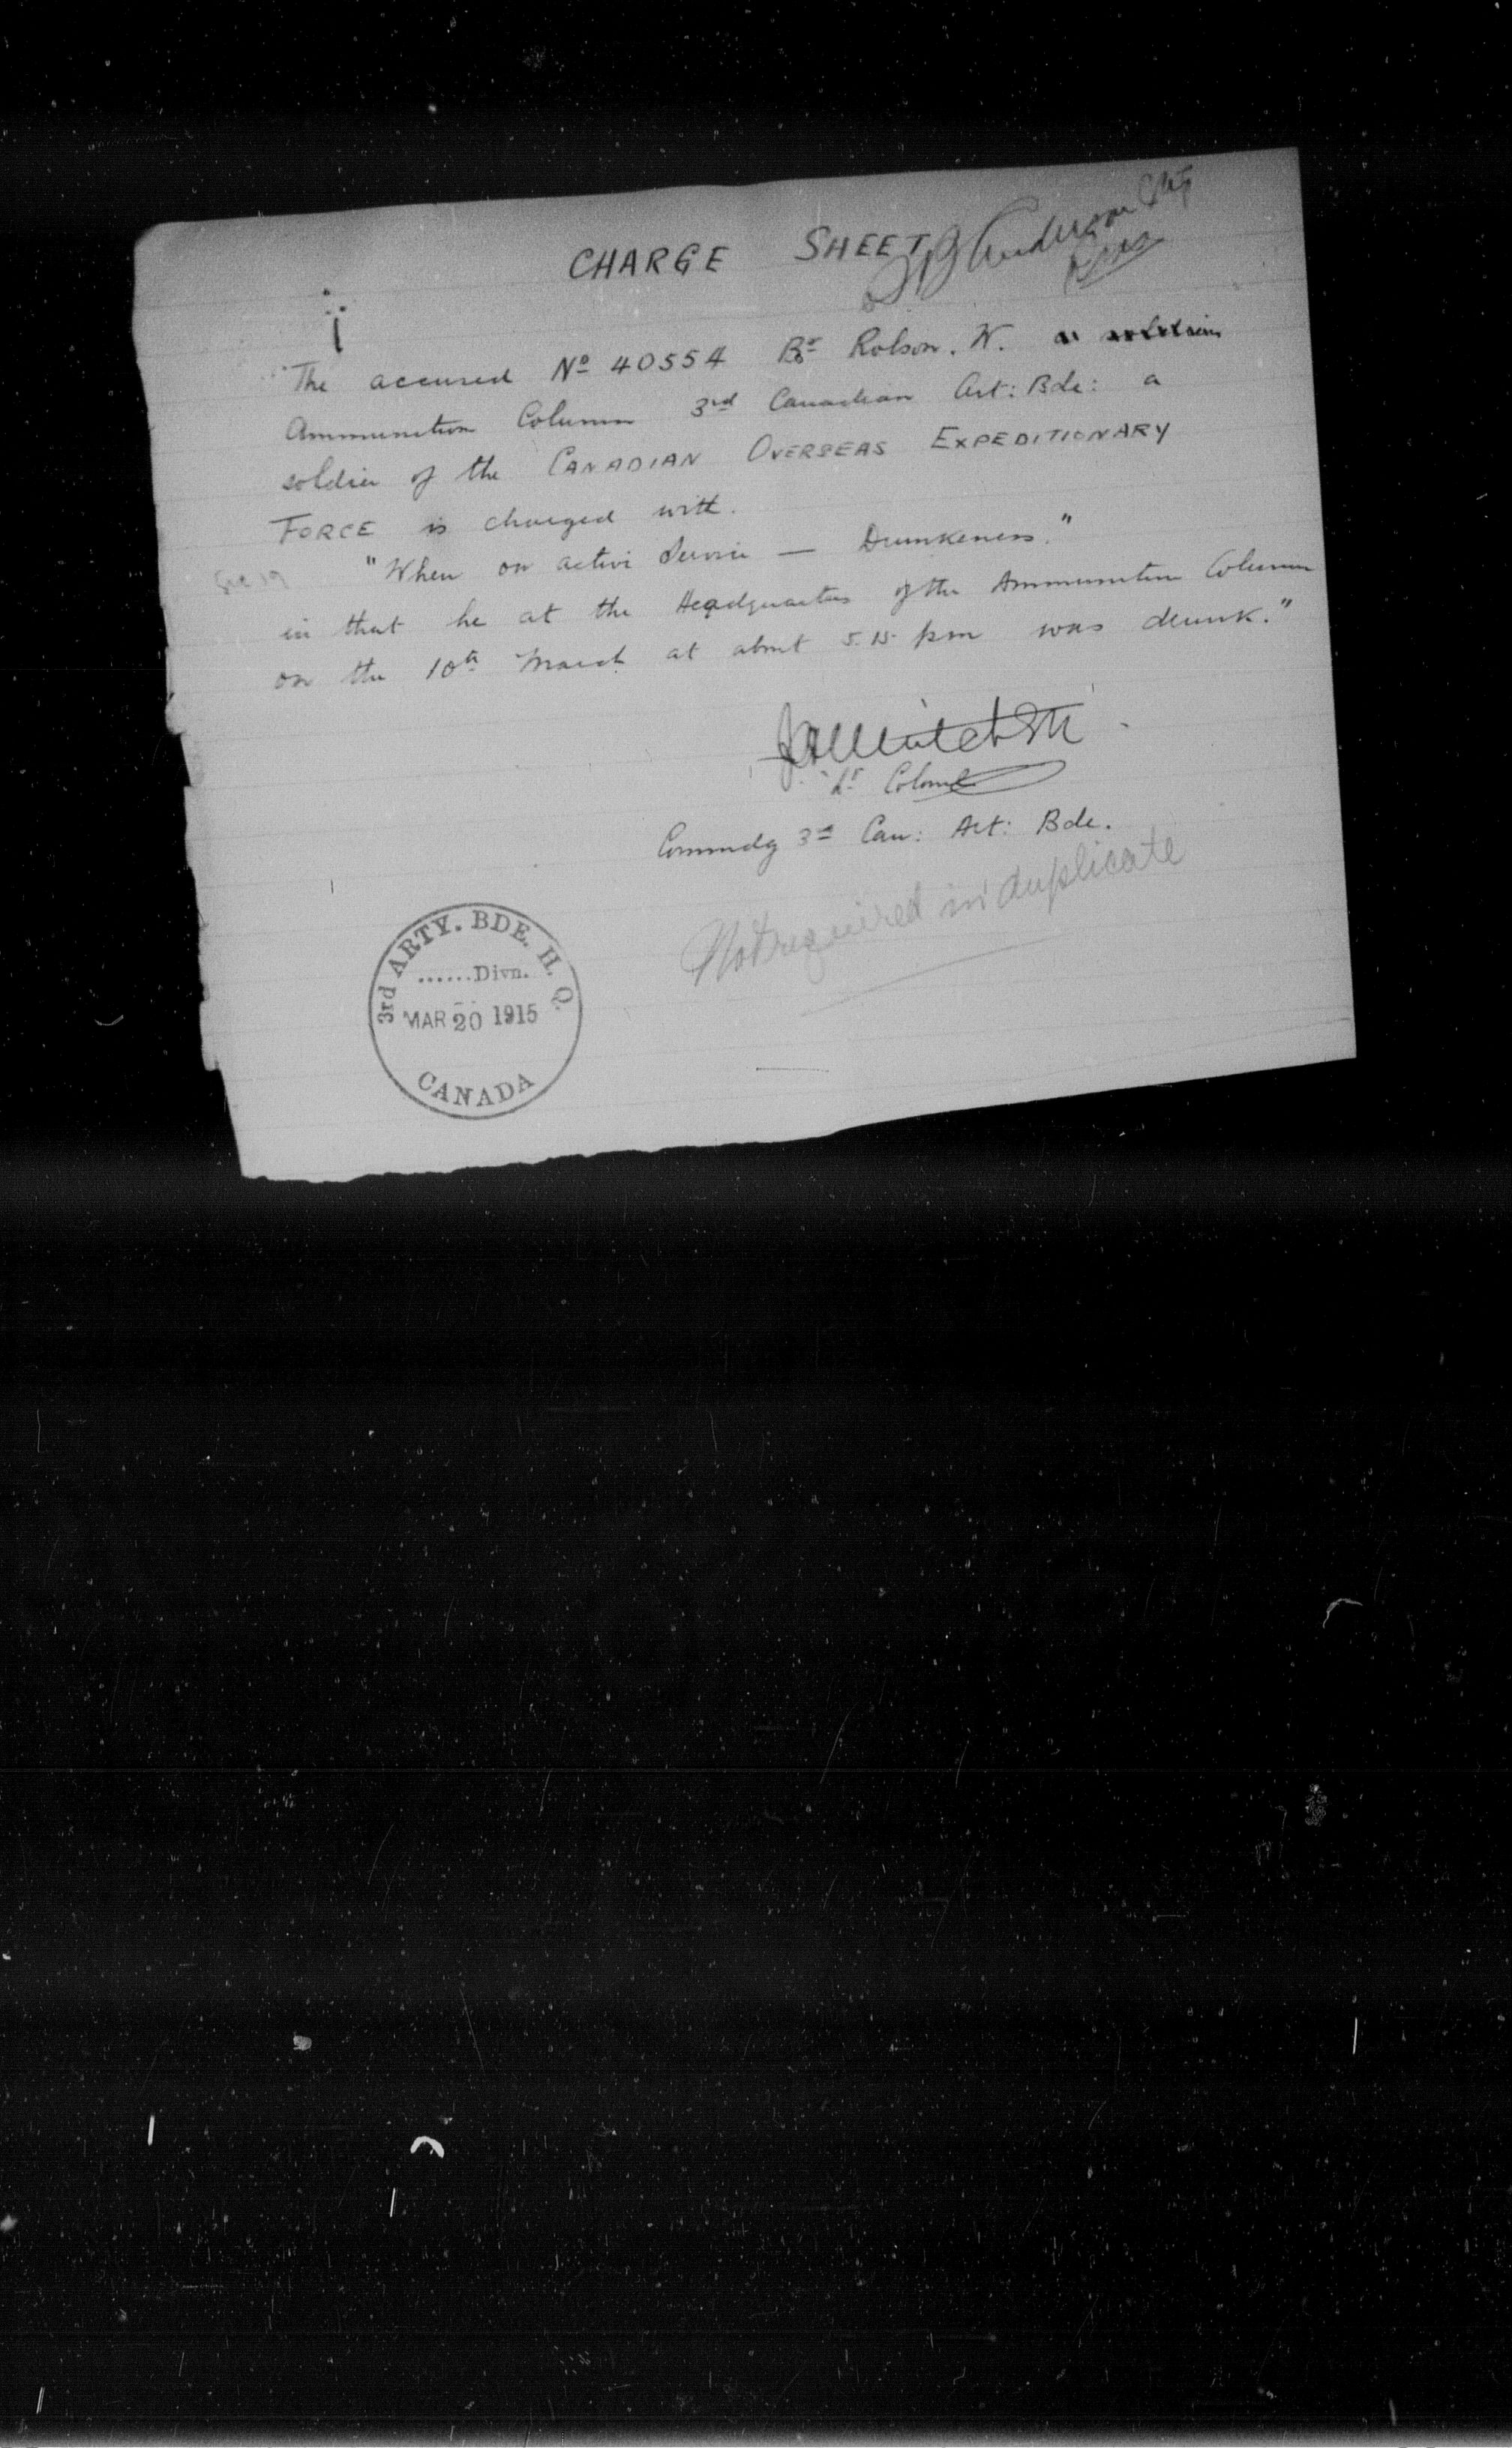 CHARGE SHEET
Anderson
The accused No 40554 Br Robson. W. a
Ammunition Column 3rd Canadian Art: Bde: a
soldier of the CANADIAN OVERSEAS EXPEDITIONARY
FORCE is charged with.
Sec 19 "When on active Service — Drunkeness."
in that he at the Headquarters of the Ammunition Column
on the 10th March at about 5.15 pm was drunk."
Lt Colonel
Commdg 3rd Can: Art: Bde.
Not required in duplicate
3rd ARTY. BDE. H. Q.
......Divn.
MAR 20 1915
CANADA